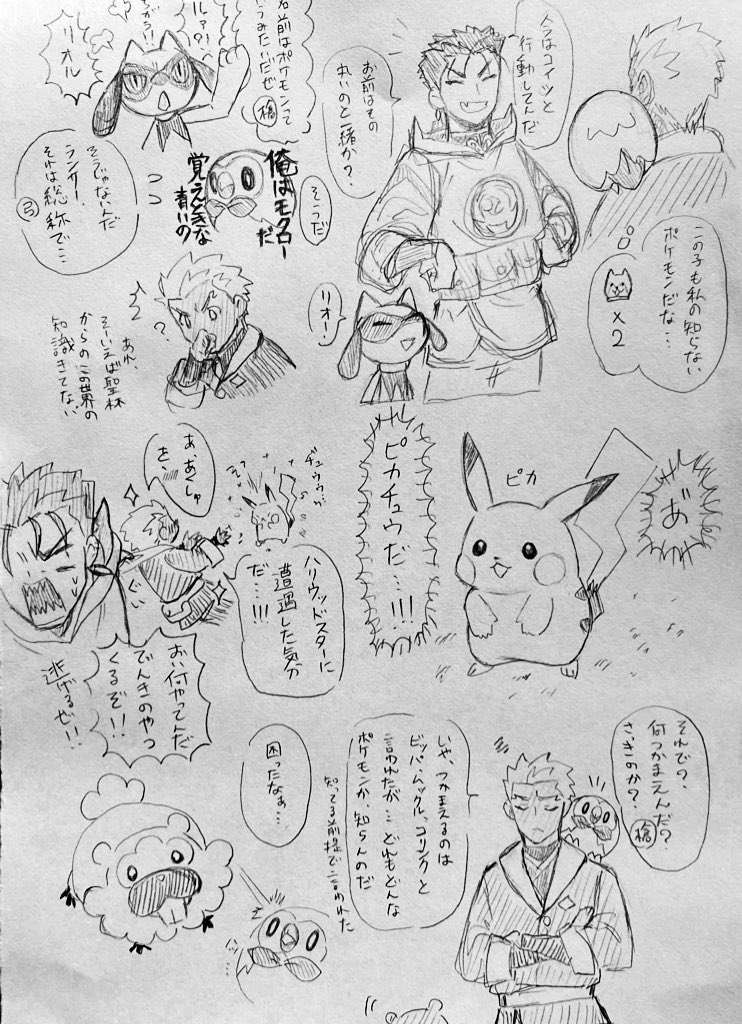 今はコイツと
行動してんだ
お前はその
丸いのと一緒か?
この子も私の知らない
ポケモンだな…
×2
リオー!
名前はポケモンって
いうみたいだぜ
槍
リオル
そうだ
俺はモクローだ
覚えときな
青いの
そうじゃないんだ
ランサー、
それは総称で…
弓
?
あれ
そういえば聖杯
からのこの世界の
知識きてない
あ゛
ピカ
ピカチュウだ…!!!
ハリウッドスターに
遭遇した気分
だ…!!!
あ、あくしゅ
ぐい
おい何やってんだ
でんきのやつ
くるぞ!!
逃げるぜ!!
それで?、
何つかまえんだ?
さっきのか?
槍
いや、つかまえるのは
ビッパ、ムックル、コリンクと
言われたが…どれもどんな
ポケモンか、知らんのだ
知ってる前提で言われた
困ったなぁ…